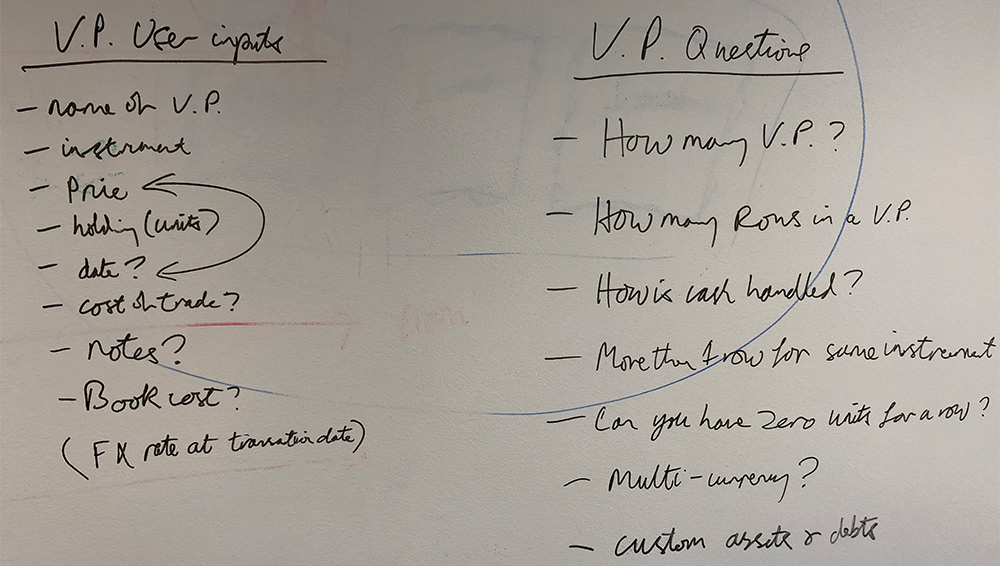 V.P. User inputs
- name of V.P.
- instrument
- Price
- holding (units)
- date?
- cost of trade?
- notes?
- Book cost?
(FX rate at transaction date)
V.P. Questions
- How many V.P.?
- How many Rows in a V.P.
- How is cash handled?
- More than 1 row for same instrument
- Can you have zero units for a row?
- Multi-currency?
- custom assets & debts